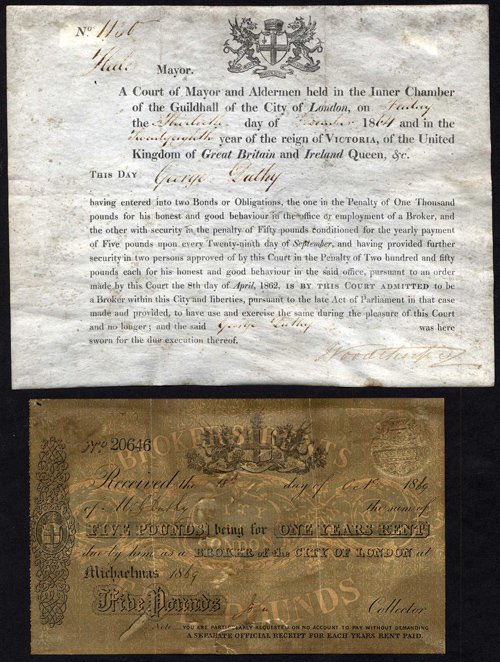 No 1156
Mayor.
A Court of Mayor and Aldermen held in the Inner Chamber
of the Guildhall of the City of London, on Tuesday
the Thirteenth day of December 1864 and in the
Twentyeighth year of the reign of VICTORIA, of the United
Kingdom of Great Britain and Ireland Queen, &c.
THIS DAY George Duthy
having entered into two Bonds or Obligations, the one in the Penalty of One Thousand
pounds for his honest and good behaviour in the office or employment of a Broker, and
the other with security in the penalty of Fifty pounds conditioned for the yearly payment
of Five pounds upon every Twenty-ninth day of September, and having provided further
security in two persons approved of by this Court in the Penalty of Two hundred and fifty
pounds each for his honest and good behaviour in the said office, pursuant to an order
made by this Court the 8th day of April, 1862, IS BY THIS COURT ADMITTED to be
a Broker within this City and liberties, pursuant to the late Act of Parliament in that case
made and provided, to have use and exercise the same during the pleasure of this Court
and no longer; and the said George Duthy was here
sworn for the due execution thereof.
Woodthorpe
BROKERS RENTS
No 20646
Received the day of Octr 1869
of Mr G Duthy the sum of
FIVE POUNDS being for ONE YEARS RENT
due by him as a BROKER of the CITY OF LONDON at
Michaelmas 1869
Five Pounds Collector
POUNDS
Note. YOU ARE PARTICULARLY REQUESTED ON NO ACCOUNT TO PAY WITHOUT DEMANDING
A SEPARATE OFFICIAL RECEIPT FOR EACH YEARS RENT PAID.